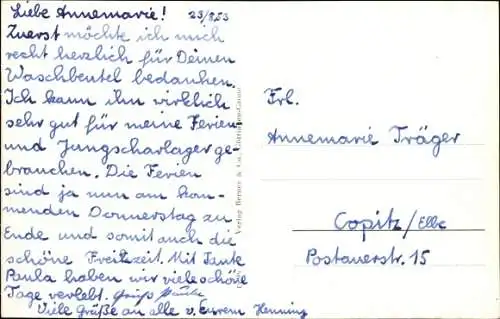 Liebe Annemarie! 23/8.53
Zuerst möchte ich mich
recht herzlich für Deinen
Waschbeutel bedanken.
Ich kann ihn wirklich
sehr gut für meine Ferien-
und Jungscharlager ge-
brauchen. Die Ferien
sind ja nun am kom-
menden Donnerstag zu
Ende und somit auch die
schöne Freizeit. Mit Tante
Paula haben wir viele schöne
Tage verlebt.
Viele Grüße an alle v. Eurem Henning
Verlag Berner & Co.
Frl.
Annemarie Träger
Copitz/Elbe
Postauerstr. 15